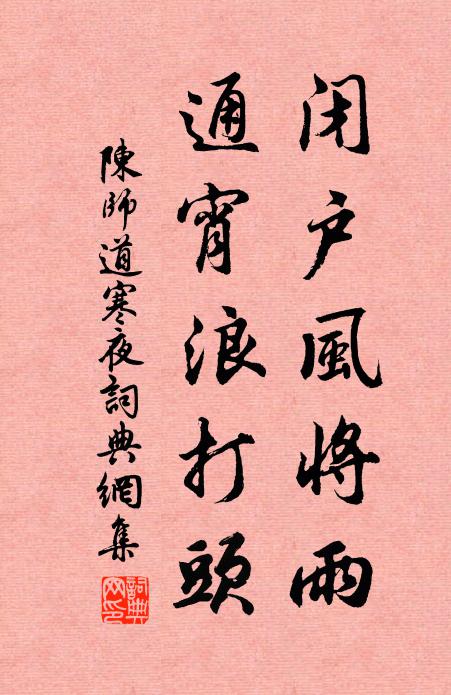 闭户風將雨
通宵浪打頭
陳師道寒夜詞典網集
詞典網印